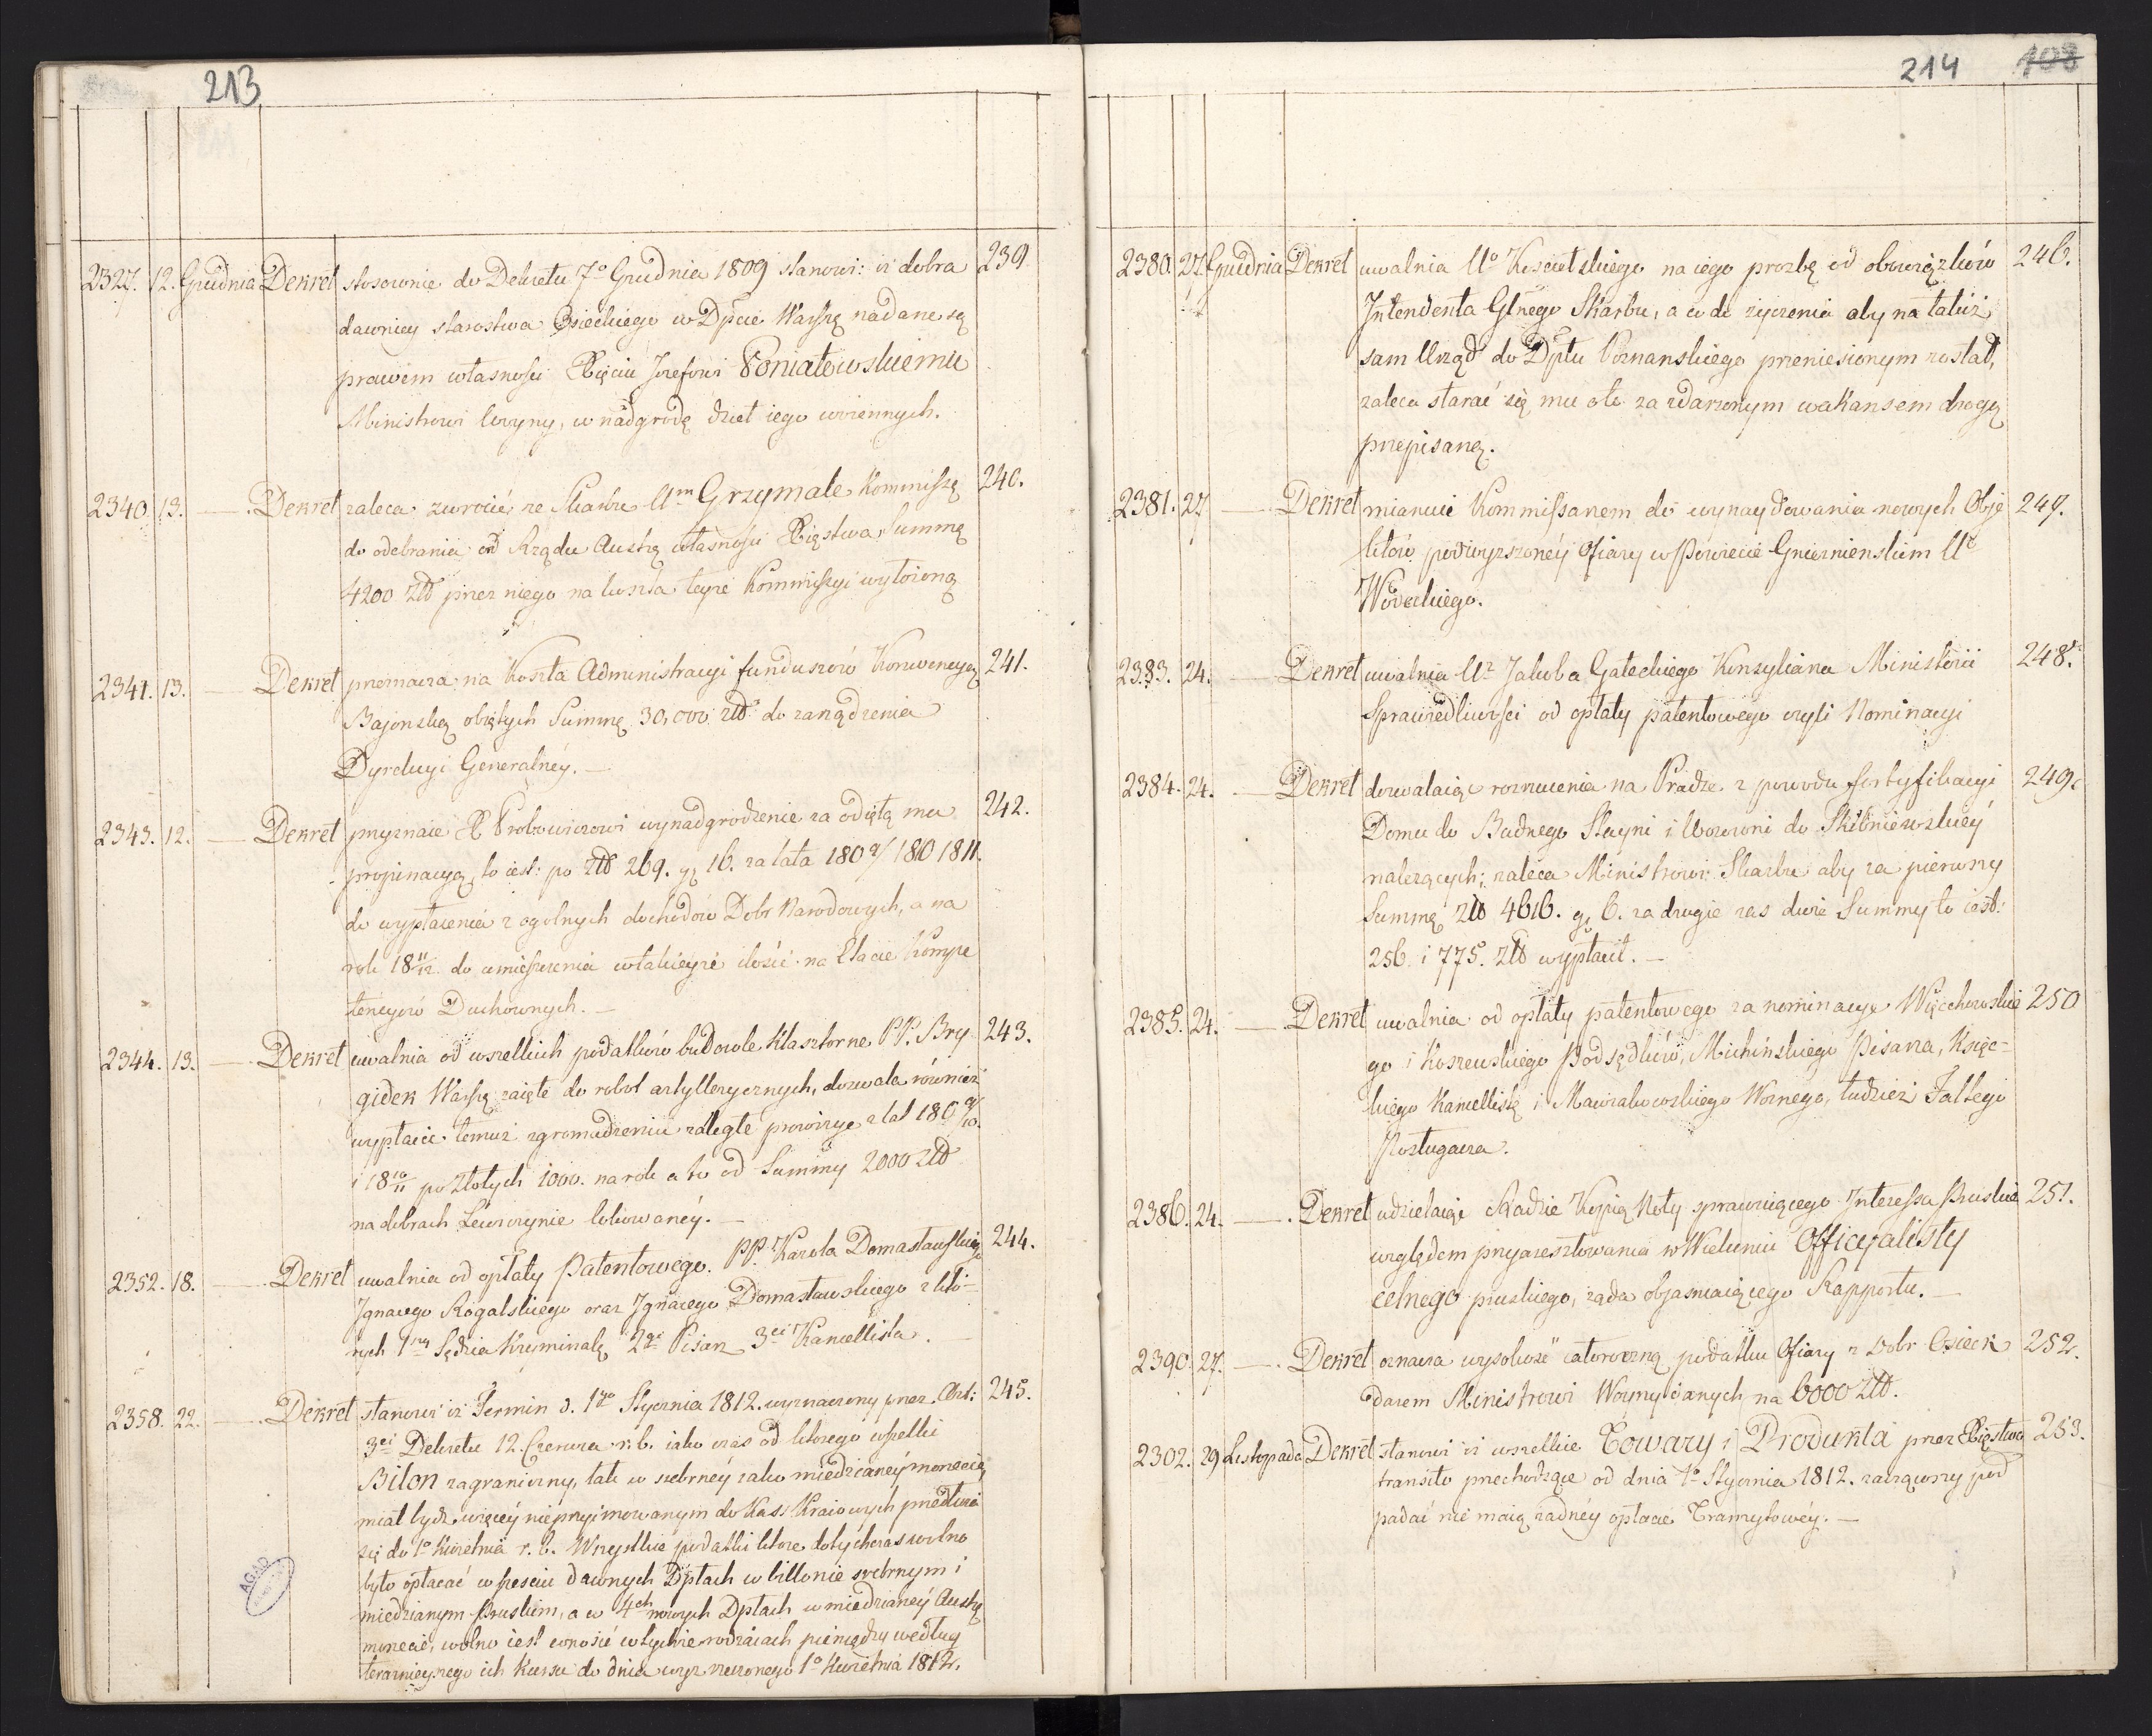 213
2327. 12. Grudnia Dekret stosownie do Dekretu 7º Grudnia 1809 stanowi: iż dobra 239
dawniey starostwa Osieckiego w Dpcie Warszą nadane są
prawem własności Xięciu Jozefowi Poniatowskiemu
Ministrowi Woyny, w nadgrodę dzieł iego woiennych.
2340. 13. — Dekret zaleca zwrócić ze Skarbu Um Grzymale Kommissą 240.
do odebrania od Rządu Austrą własności Xięstwa Summę
4200 Złł przez niego na koszta teyże Kommissyi wyłożoną
2341. 13. — Dekret przeznacza na Koszta Administracyi funduszów Konwencyą 241.
Bajonską obiętych Summę 30,000 złł do zarządzenia
Dyrekcyi Generalnéy. —
2343. 12. — Dekret przyznaie X Probowiczowi wynadgrodzenie za odiętą mu 242.
propinacyą, to iest: po złł 269. gr 16. za lata 1809/ 1810 1811.
do wypłacenia z ogolnych dochodów Dobr Narodowych, a na
rok 18 11/12 do umieszczenia w takieyże ilości na Etacie Kompe
tencyów Duchownych. —
2344. 13. — Dekret uwalnia od wszelkich podatków budowle Klasztorne PP. Bry 243.
gidek Warszą zaięte do robot artyllerycznych, dozwala również
wypłacić temuż zgromadzeniu zaległe prowizye z lat 180 9/10.
i 18 10/11 po Złotych 1000. na rok a to od Summy 2000 Złł
na dobrach Lewiczynie lokowanéy. —
2352. 18. — Dekret uwalnia od opłaty Patentowego. PP. Karola Domasławskiego 244.
Ignacego Rogalskiego oraz Ignacego Domasławskiego z któ-
rych 1ny Sędzia Kryminalą 2gi Pisarz 3ci Kancellista. —
2358. 22. — Dekret stanowi iż Termin d. 1go Stycznia 1812. wyznaczony przez Art: 245.
3ci Dekretu 12. Czerwca r. b. iako czas od ktorego wszelki
Bilon zagraniczny, tak w srebrnéy iako miedzianéy monecie,
miał bydź więcéy nieprzyimowanym do Kass Kraiowych przedłuża
się do 1º Kwietnia r. b. Wszystkie podatki ktore dotychczas wolno
było opłacać w sześciu dawnych Dptach w billonie srebrnym i
miedzianym Pruskim, a w 4ch nowych Dptach w miedzianéy Austrą
monecie, wolno iest wnosić w tychże rodzaiach pieniędzy według
teraznieyszego ich Kursu do dnia wyż rzeczonego 1º Kwietnia 1812.
AGAD
214 108
2380. 27 Grudnia Dekret uwalnia Uº Kościelskiego na iego prozbę od obowiązków 246.
Intendenta Glnego Skarbu, a co do życzenia aby na takiż
sam Urząd do Dptu Poznanskiego przeniesionym został,
zaleca starać się mu o to za zdarzonym wakansem drogą
przepisaną.
2381. 27 — Dekret mianuie Kommissarzem do wynaydowania nowych Obje 247.
któw podwyższonéy Ofiary w Powiecie Gnieznienskim Uº
Wodzkiego.
2383. 24. — Dekret uwalnia Uº Jakuba Gałeckiego Konsyliarza Ministerii 248.
Sprawiedliwości od opłaty patentowego czyli Nominacyi
2384. 24. — Dekret dozwalaiąc rozrzucenia na Pradze z powodu fortyfikacyi 249.
Domu do Budnego Stayni i Wozowni do Skibniewskiéy
należących; zaleca Ministrowi Skarbu aby za pierwszy
Summę Złł 4616. gr 6. za drugie zas dwie Summy to iest:
256. i 775. Złł wypłacił. —
2385. 24. — Dekret uwalnia od opłaty patentowego za nominacye Więckowskie 250
go i Koszewskiego Podsędków, Michińskiego Pisarza, Księc-
kiego Kancellistę i Mawrakowskiego Woznego, tudzież Faltego
Posługacza.
2386. 24. — Dekret udzielaiąc Radzie Kopią Noty sprawuiącego Interessa Pruskie 251.
względem przyaresztowania w Wieluniu Officyalisty
celnego pruskiego, żąda objasniaiącego Rapportu. —
2390. 27. — Dekret oznacza wysokość całoroczną podatku Ofiary z Dobr Osieck 252.
darem Ministrowi Woyny danych na 6000 Złł.
2302. 29 Listopada Dekret stanowi iż wszelkie Towary i Produkta przez Xięstwo 253.
transito przechodzące od dnia 1º Stycznia 1812. zacząwszy pod
padać nie maią żadnéy opłacie Tranzytowéy. —